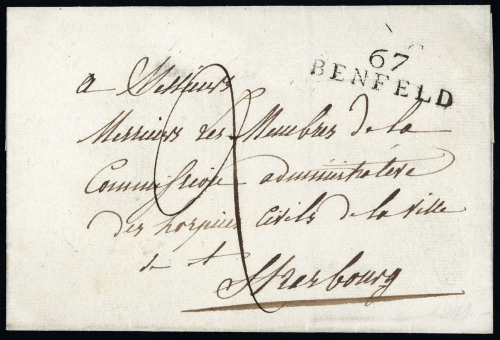 67
BENFELD
a Messieurs
Messieurs les Membres de la
Commission administrative
des hospices Civils de la Ville
de Strasbourg